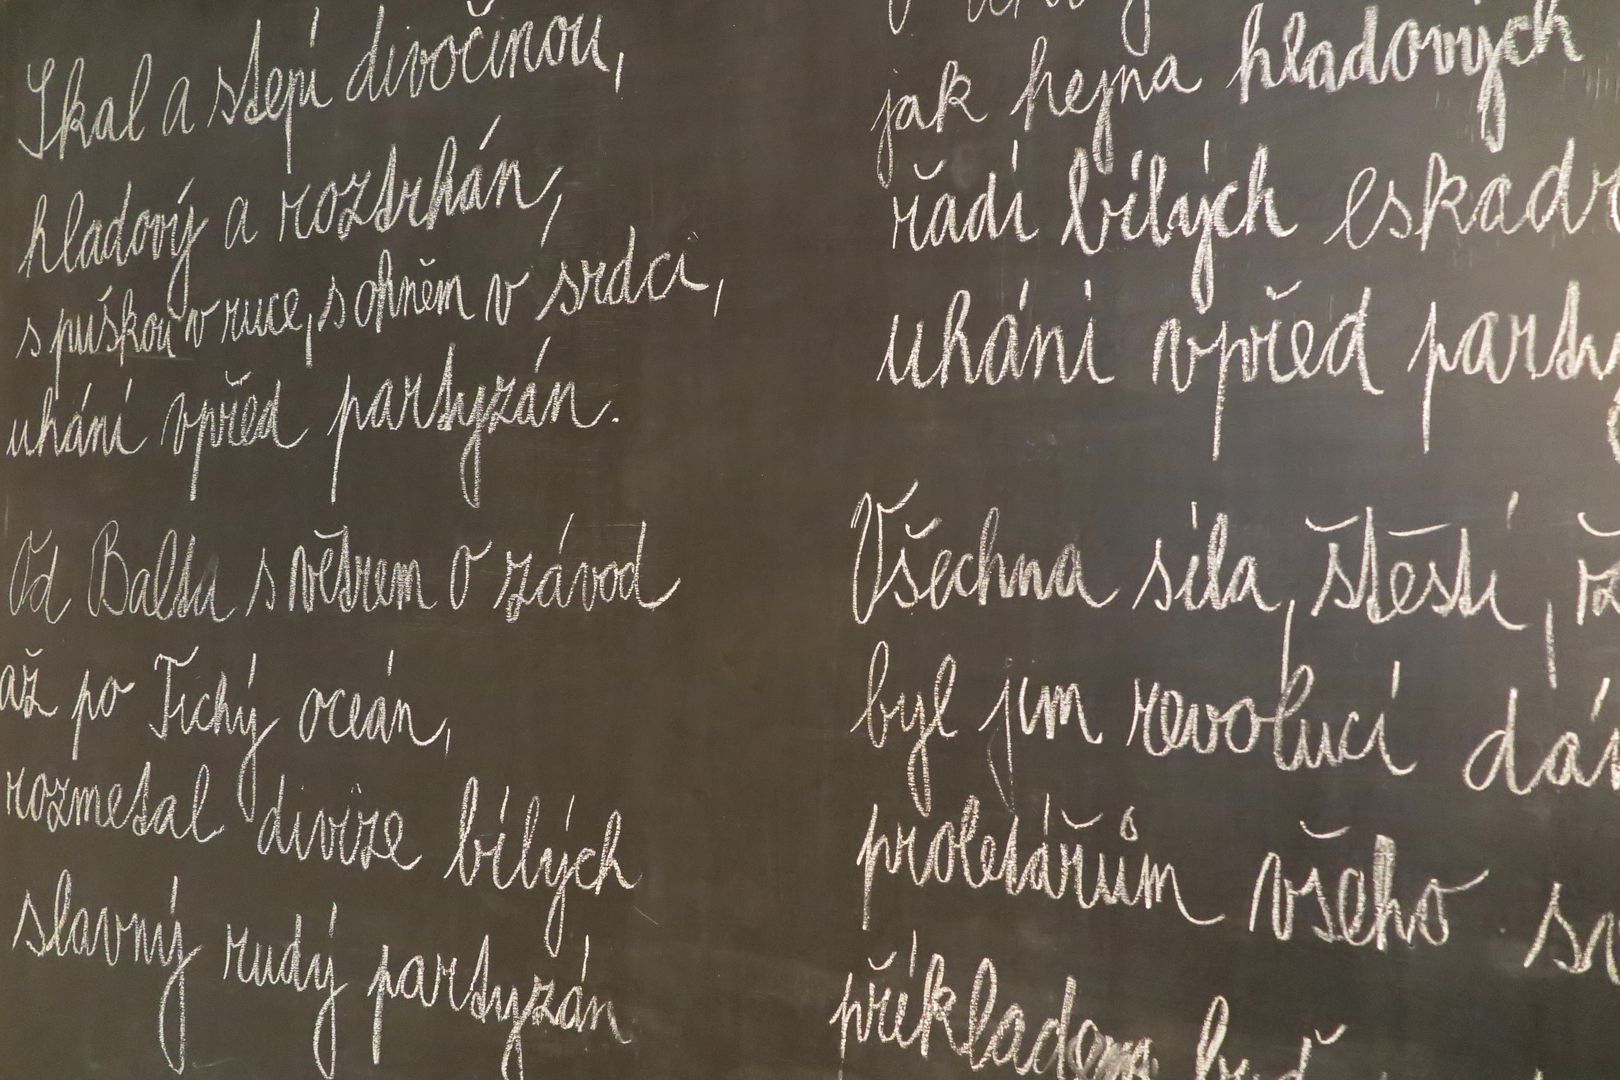 Skal a stepí divočinou,
hladový a roztrhán,
s puškou v ruce, s ohněm v srdci,
uhání vpřed partyzán.
Od Balta s větrem o závod
až po Tichý oceán,
rozmetal divize bílých
slavný rudý partyzán
jak hejna hladových
řádí bílých
uhání vpřed
Všechna síla, štěstí,
byl jim revolucí
proletářům všeho
příkladem buď